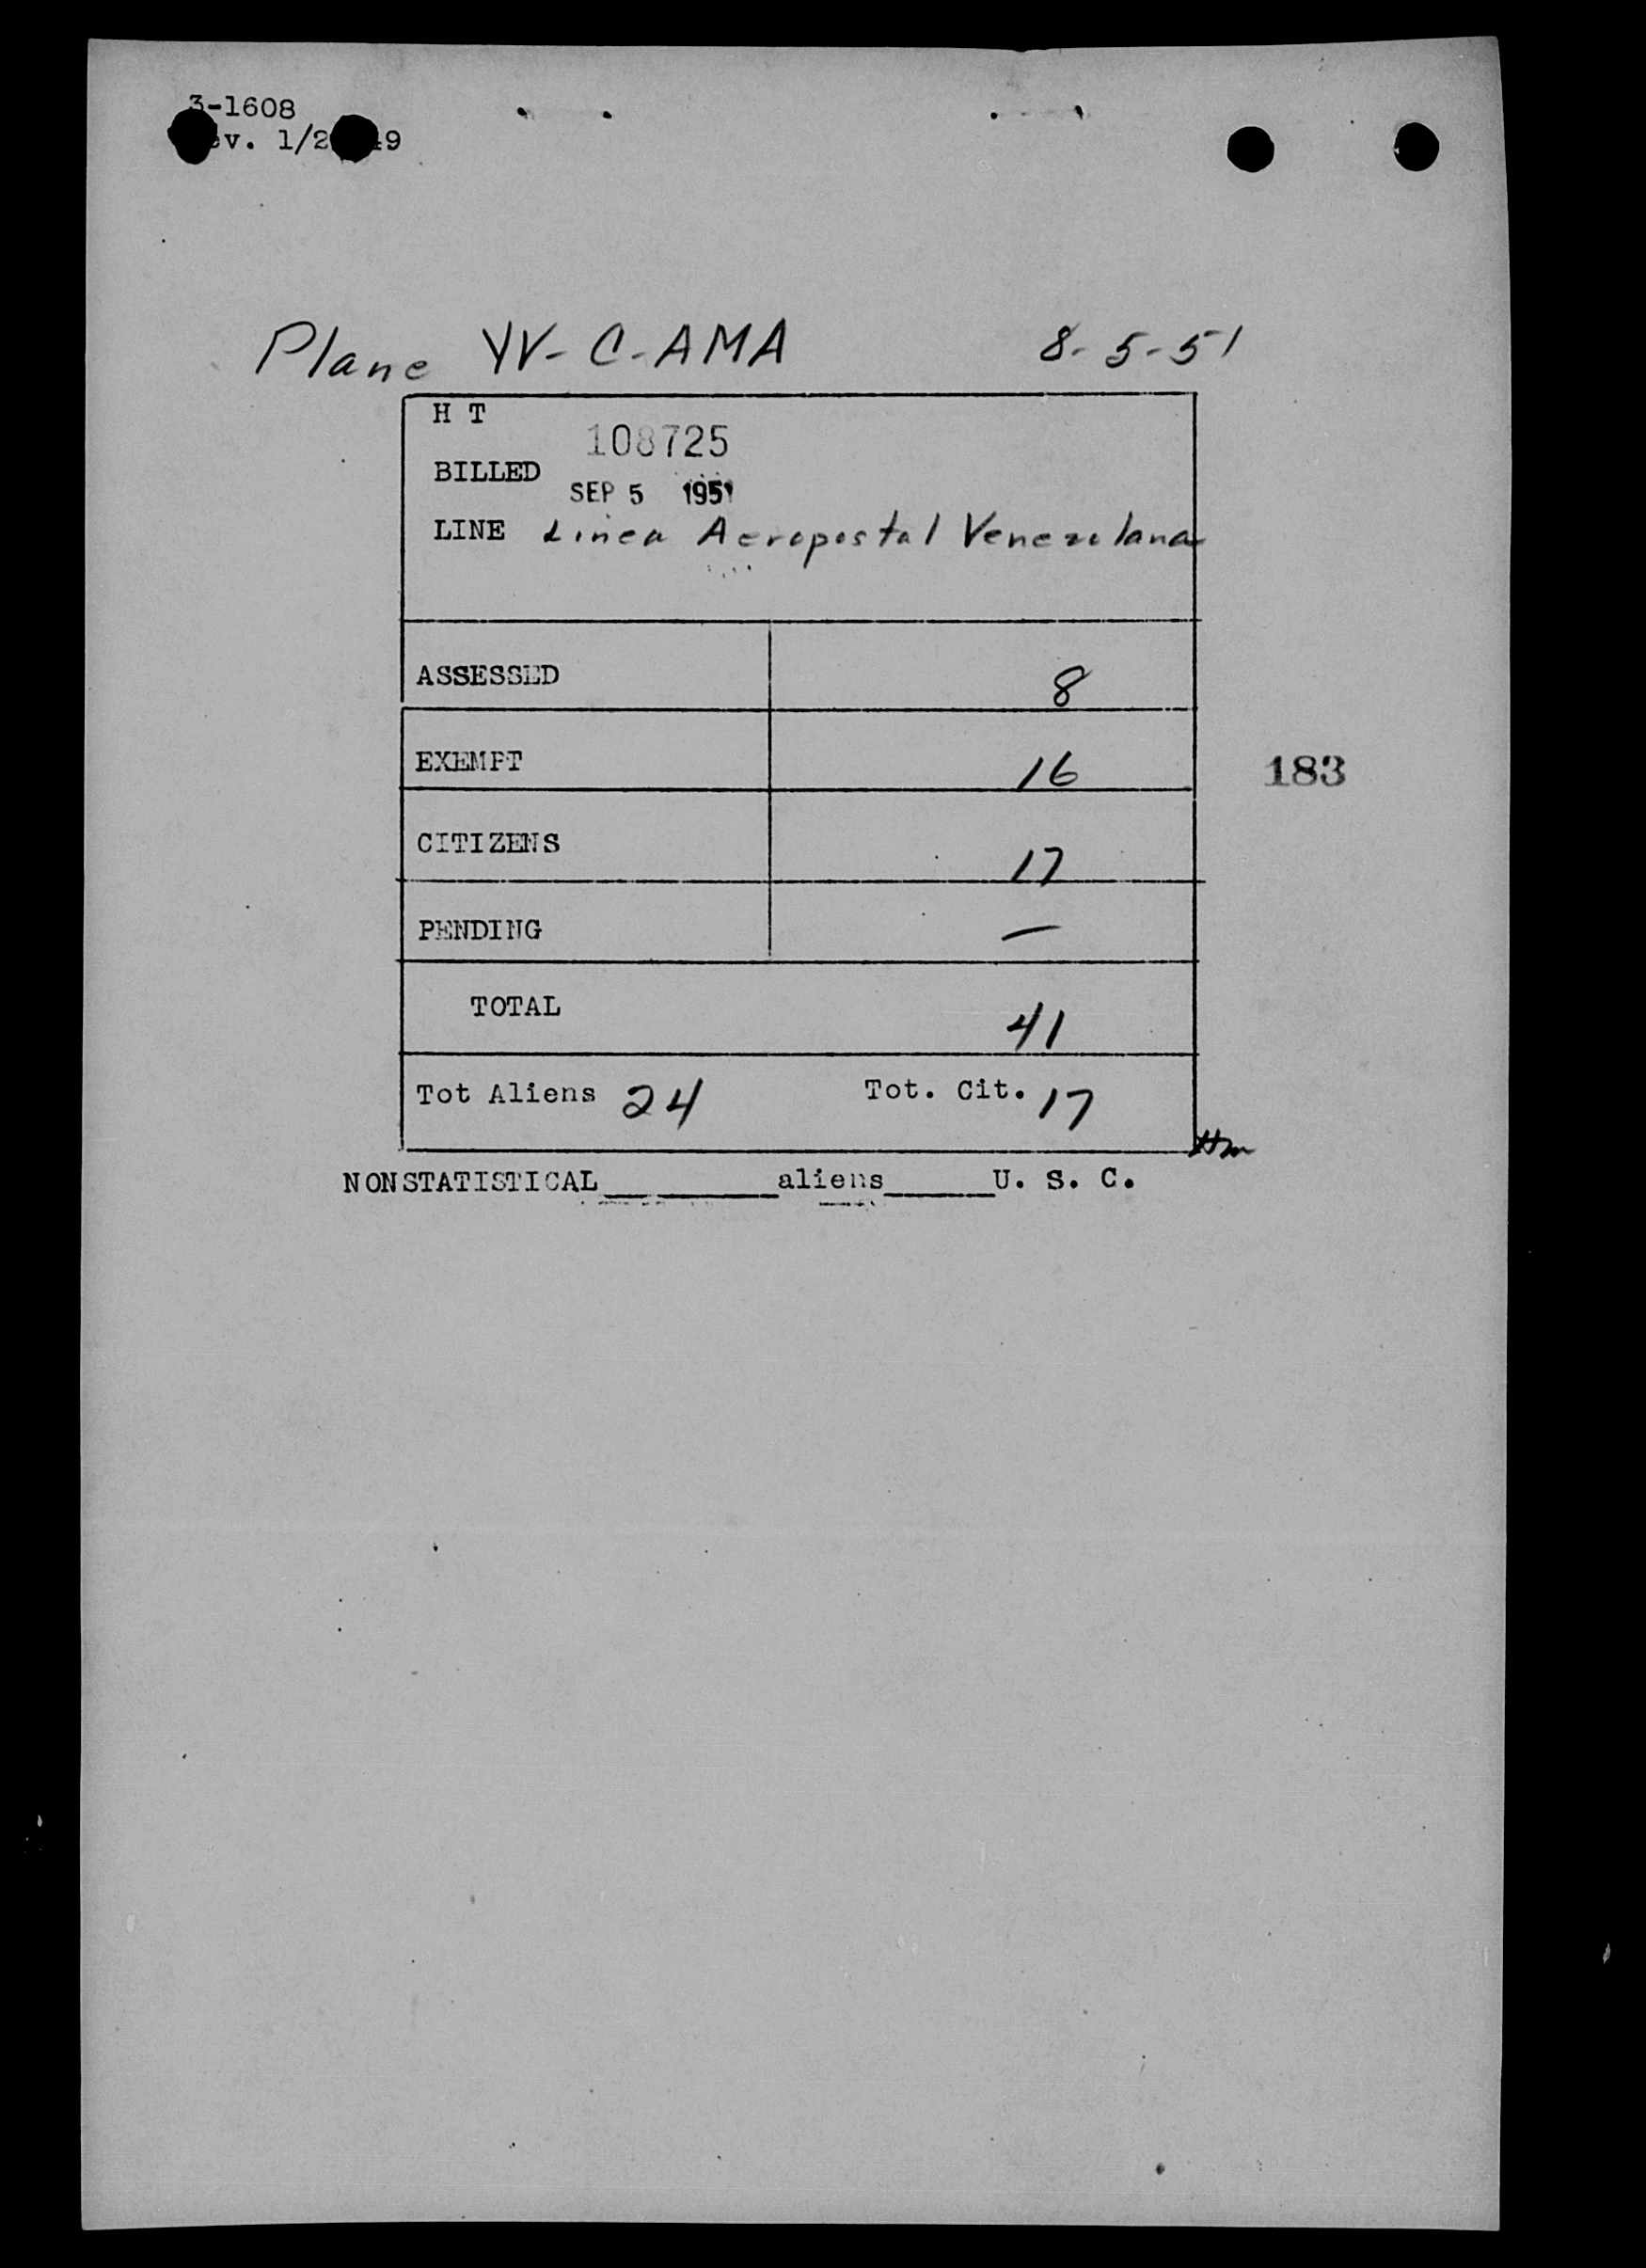 3-1608
ev. 1/2 49
Plane YV-C-AMA 8-5-51
H T
108725
BILLED
SEP 5 1951
LINE Linea Aeropostal Venezolana
ASSESSED 8
EXEMPT 16
183
CITIZENS 17
PENDING —
TOTAL 41
Tot Aliens 24 Tot. Cit. 17
NONSTATISTICAL__________aliens______U. S. C.